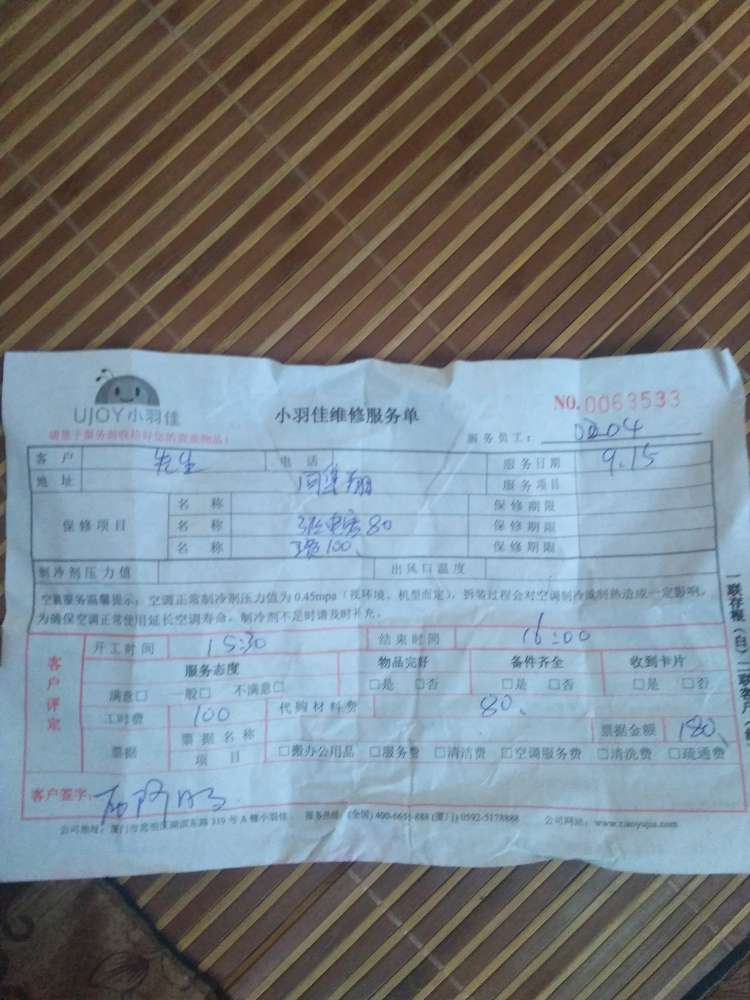 UJOY小羽佳
小羽佳维修服务单
NO.0063533
请签字服务前收拾好您的贵重物品!
服务员工: 0204
客户 先生 电话 服务日期 9.15
地址 服务项目
保修项目 名称 保修期限
名称 80 保修期限
名称 100 保修期限
制冷剂压力值 出风口温度
空调服务温馨提示:空调正常制冷剂压力值为0.45mpa(视环境、机型而定),拆装过程会对空调制冷或制热造成一定影响,
为确保空调正常使用延长空调寿命,制冷剂不足时请及时补充。
客户评定
开工时间 15:30 结束时间 16:00
服务态度 物品完好 备件齐全 收到卡片
满意□ 一般□ 不满意□ □是 □否 □是 □否 □是 □否
工时费 100 代购材料费 80
票据 票据名称 票据金额 180
项目 □搬办公用品 □服务费 □清洁费 □空调服务费 □清洗费 □疏通费
客户签字:
公司地址:厦门市 湖滨东路319号A幢小羽佳 服务热线:(全国)400-6655-888(厦门)0592-5178888 公司网站:www.xiaoyujia.com
一联存根(白)二联客户